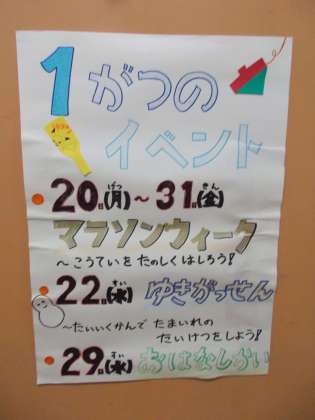 1がつの
イベント
20日(月)げつ～31日(金)きん
マラソンウィーク
～こうていを たのしくはしろう!
22日(水)すい ゆきがっせん
～たいいくかんで たまいれの
たいけつをしよう!
29日(水)すい おはなしかい